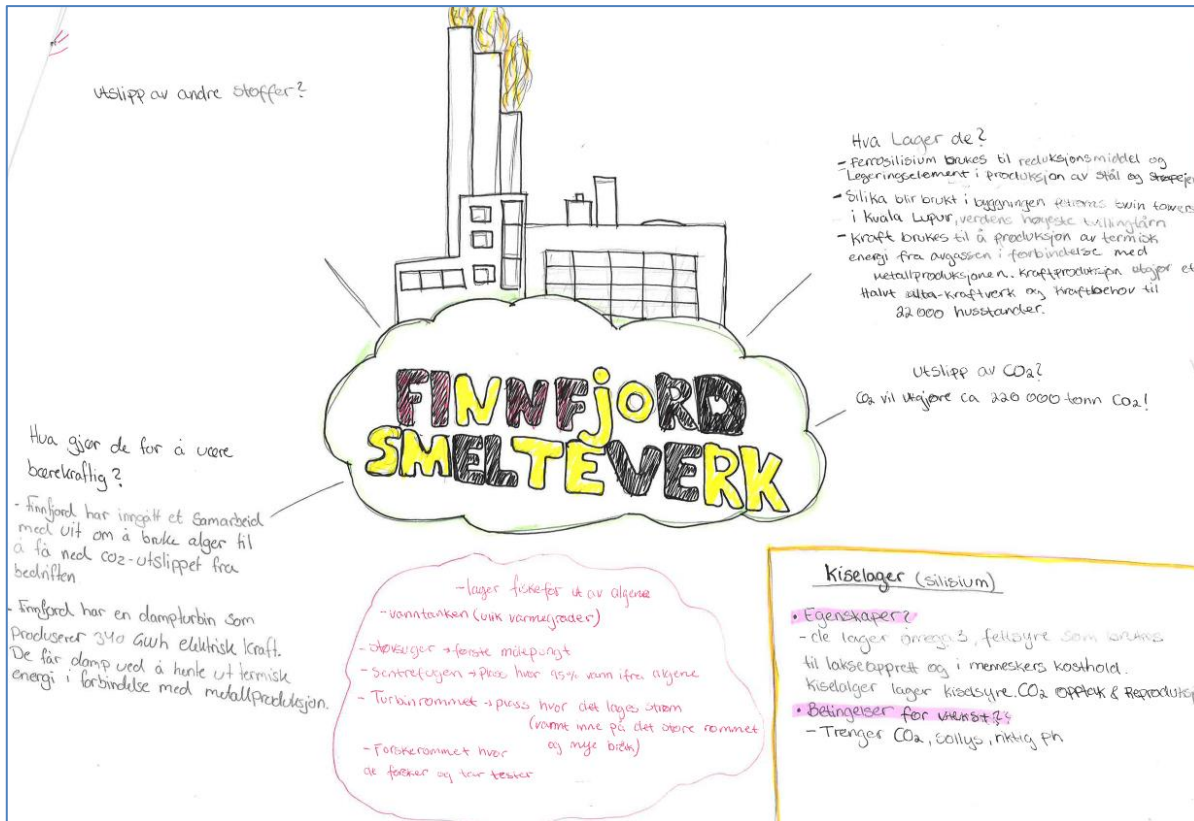 Utslipp av andre stoffer?
Hva Lager de?
- Ferrosilisium brukes til reduksjonsmiddel og
Legeringselement i produksjon av stål og støpejer
- Silika blir brukt i byggningen petronas twin towers
i Kuala Lupur, verdens høyeste tvillingtårn
- Kraft brukes til å produksjon av termisk
energi fra avgassen i forbindelse med
metallproduksjonen. Kraftproduksjon utgjør et
Halvt alta-kraftverk og kraftbehov til
22 000 husstander.
FINNFjORD
SMELTEVERK
Utslipp av CO2?
CO2 vil utgjøre ca 220 000 tonn CO2!
Hva gjør de for å være
bærekraftig?
- Finnfjord har inngått et samarbeid
med uit om å bruke alger til
å få ned CO2-utslippet fra
bedriften
- Finnfjord har en dampturbin som
Produserer 340 GWh elektrisk kraft.
De får damp ved å hente ut termisk
energi i forbindelse med metallproduksjon.
- lager fiskefôr ut av algene
- vanntanken (ulik varmegrader)
- støvsuger → første målepungt
- Sentrefugen → Plass hvor 95% vann ifra algene
- Turbinrommet → plass hvor det lages strøm
(varmt inne på det store rommet
og mye bråk)
- Forskerommet hvor
de forsker og tar tester
Kiselager (silisium)
• Egenskaper?
- de lager omega 3, fettsyre som brukes
til lakseopprett og i menneskers kosthold.
Kiselalger lager kiselsyre. CO2 opptak & Reproduksj
• Betingelser for vekst?
- Trenger CO2, sollys, riktig ph